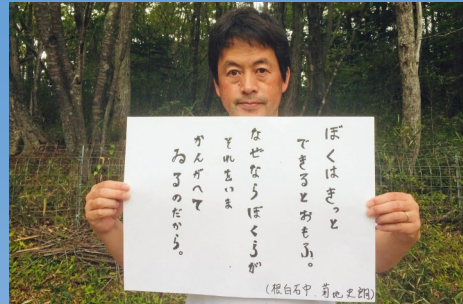 ぼくはきっと
できるとおもふ。
なぜならぼくらが
それをいま
かんがへて
ゐるのだから。
(根白石中 菊地史朗)